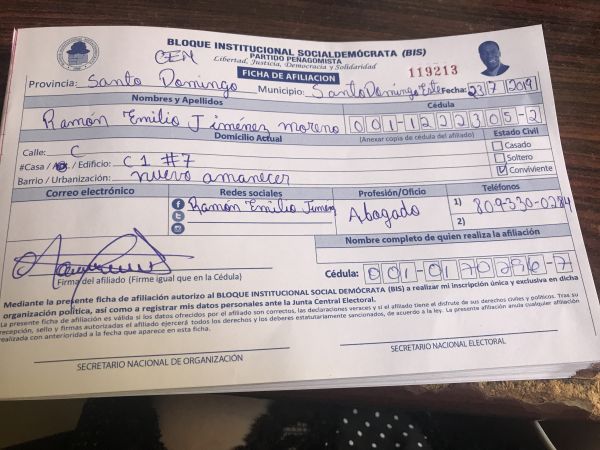 BLOQUE INSTITUCIONAL SOCIALDEMÓCRATA (BIS)
PARTIDO PEÑAGOMISTA
Libertad, Justicia, Democracia y Solidaridad
CEN
FICHA DE AFILIACION
119213
Provincia: Santo Domingo Municipio: Santo Domingo Este Fecha: 23/7/2019
Nombres y Apellidos Cédula
Ramon Emilio Jiménez moreno 001-1222305-2
Domicilio Actual (Anexar copia de cédula del afiliado) Estado Civil
Calle: C Casado
#Casa / Apto. / Edificio: C 1 #7 Soltero
Barrio / Urbanización: nuevo amanecer Conviviente
Correo electrónico Redes sociales Profesión/Oficio Teléfonos
Ramón Emilio Jimen Abogado 1) 809-330-0284
2)
Nombre completo de quien realiza la afiliación
Firma del afiliado (Firme igual que en la Cédula) Cédula: 001-0170296-7
Mediante la presente ficha de afiliación autorizo al BLOQUE INSTITUCIONAL SOCIAL DEMÓCRATA (BIS) a realizar mi inscripción única y exclusiva en dicha
organización política, así como a registrar mis datos personales ante la Junta Central Electoral.
La presente ficha de afiliación es válida si los datos ofrecidos por el afiliado son correctos, las declaraciones veraces y si el afiliado tiene el disfrute de sus derechos civiles y políticos. Tras su
recepción, sello y firmas autorizadas el afiliado ejercerá todos los derechos y los deberes estatutariamente sancionados, de acuerdo a la ley. La presente afiliación anula cualquier afiliación
realizada con anterioridad a la fecha que aparece en esta ficha.
SECRETARIO NACIONAL DE ORGANIZACIÓN SECRETARIO NACIONAL ELECTORAL